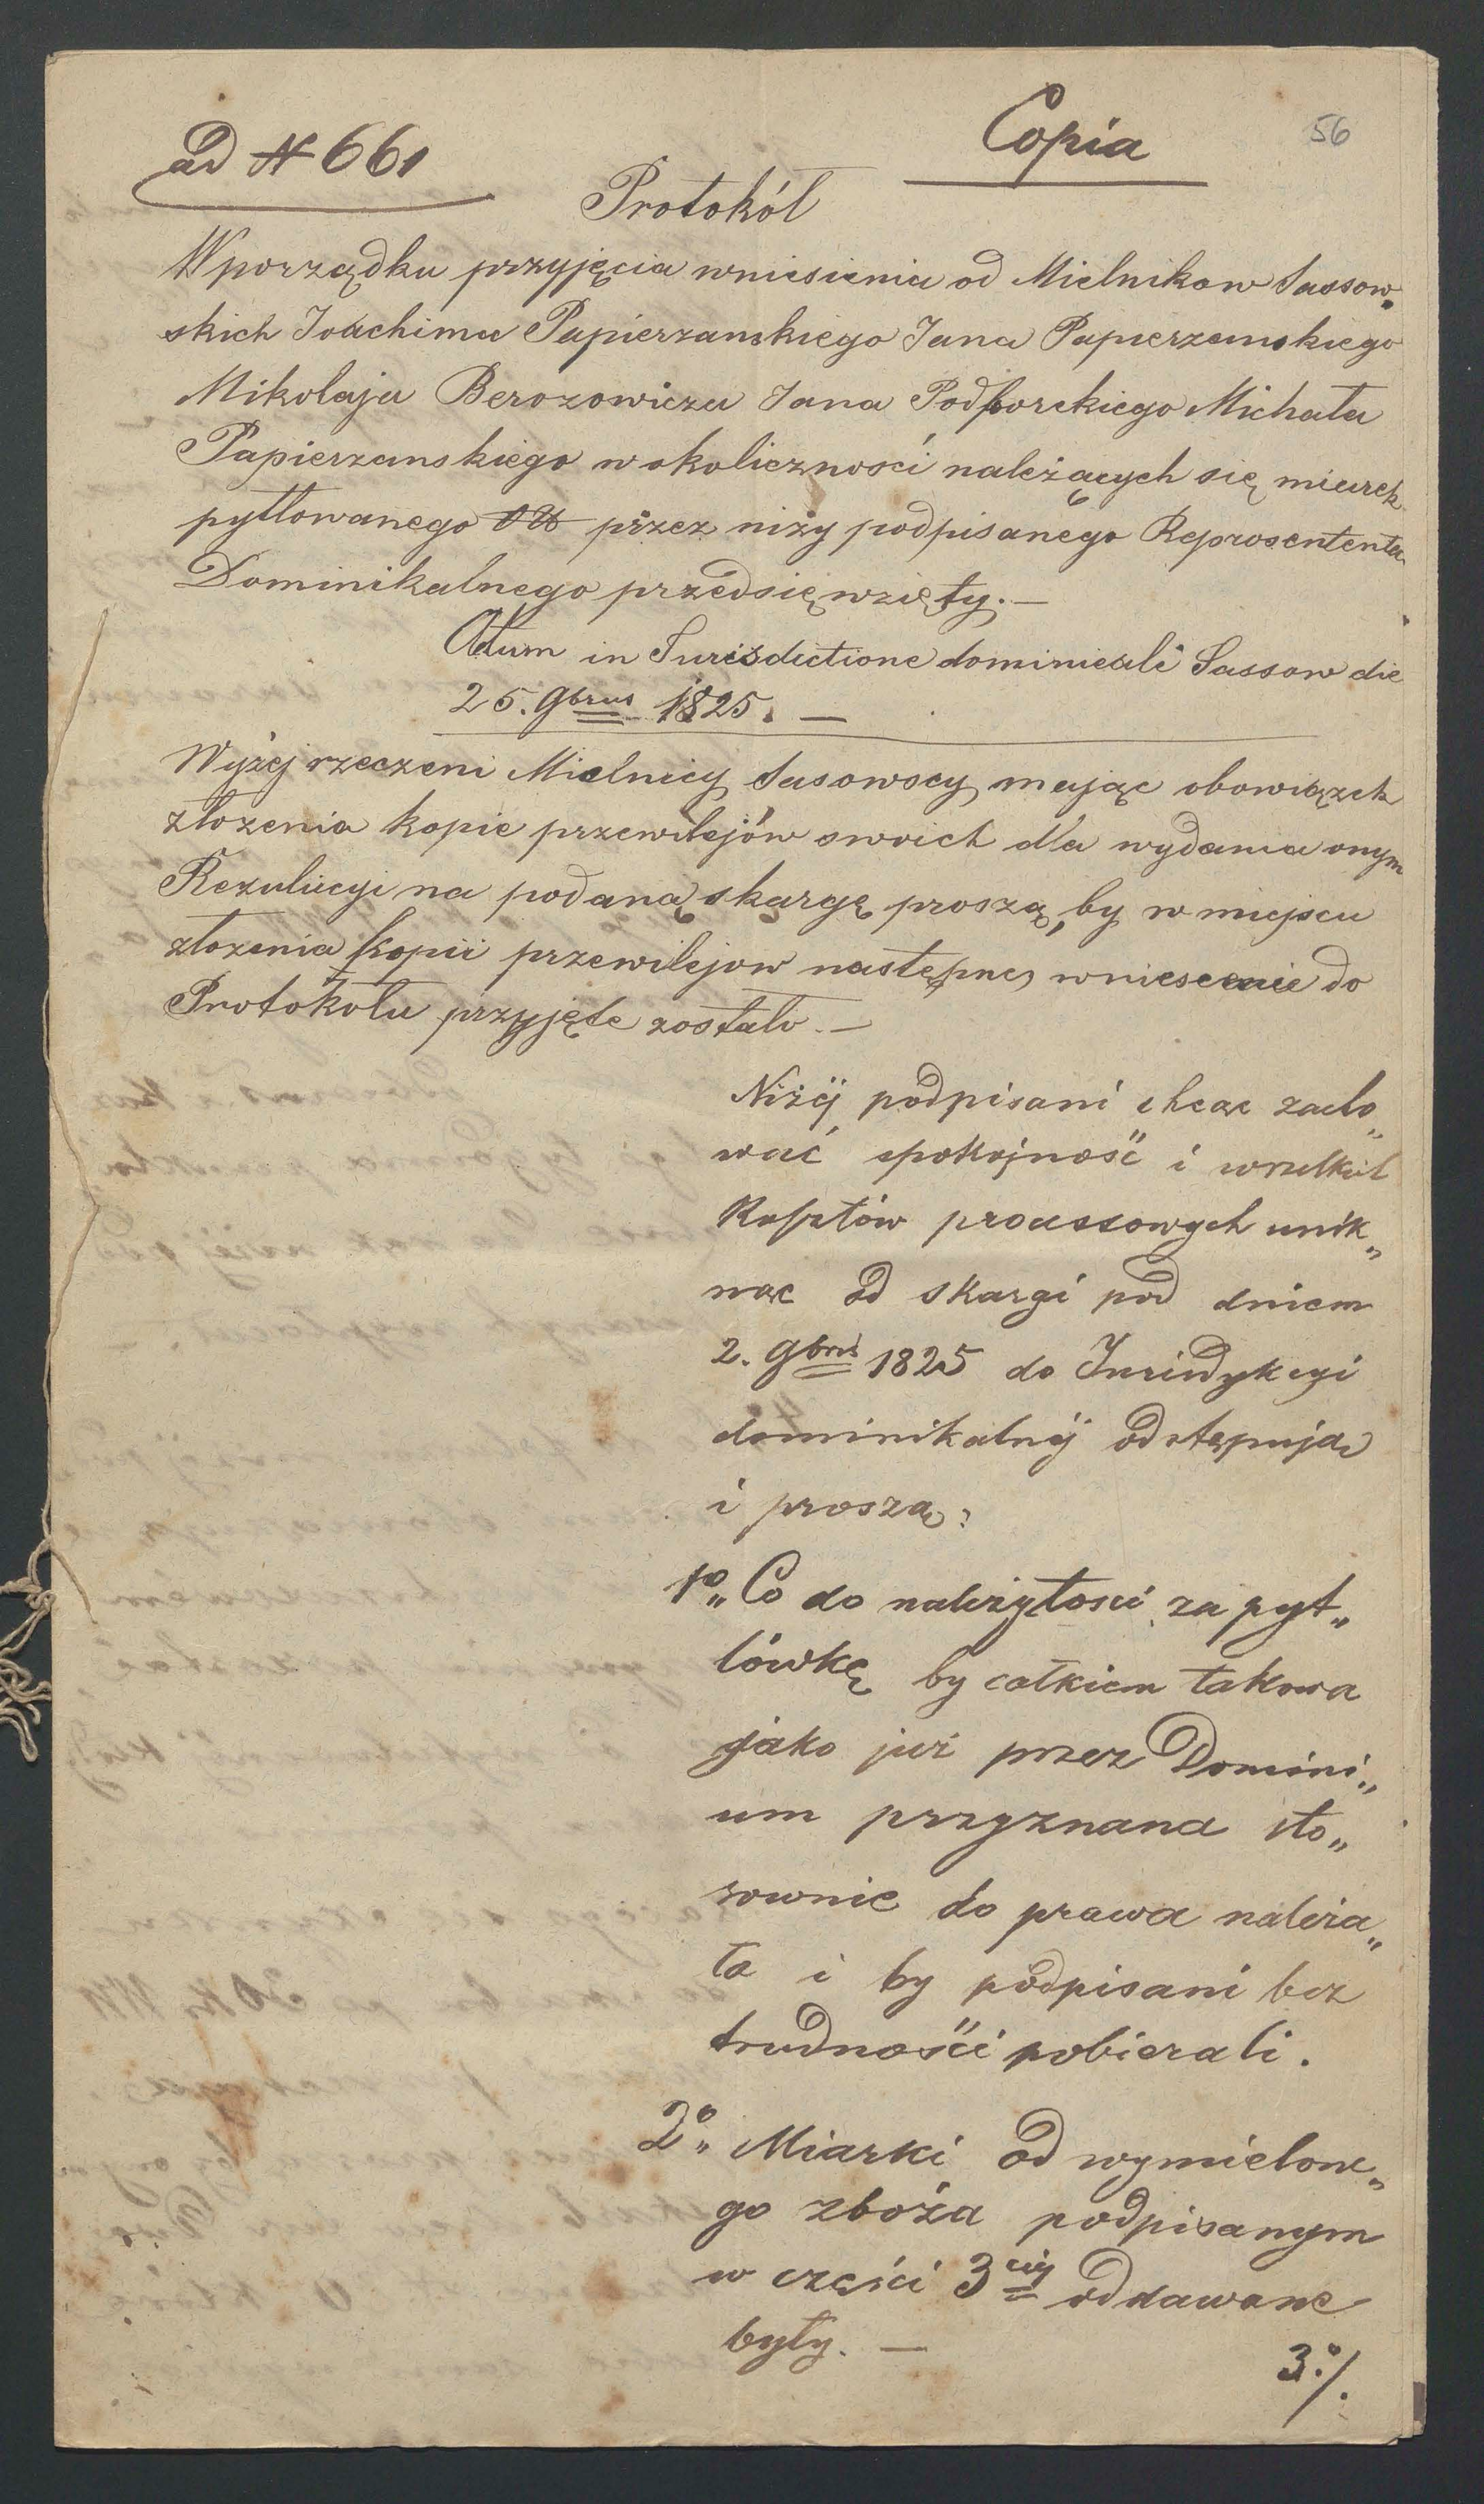 Copia
56
ad N 661
Protokół
W porządku przyjęcia wniesienia od Mielnikow Sassow„
skich Joachima Papierzanskiego Jana Papierzanskiego
Mikołaja Berozowicza Jana Podhorekiego Michała
Papierzanskiego w okoliczności należących się miarek
pytlowanego przez niży podpisanego Reprosententa
Dominikalnego przedsięwzięty. —
Actum in Jurisdictione dominicali Sassow die
25. 9brus 1825. —
Wyżej rzeczeni Mielnicy Sasowscy mając obowiązek
złozenia kopie przewilejów swoich dla wydania onym
Rezulucyi na podaną skargę proszą, by w miejscu
złozenia kopii przewilejow następne wniesienie do
Protokołu przyjęte zostało. —
Niżéj podpisani chcąc zacho„
wać spokojność i wszelkich
Kosztów processowych unik„
nąc od skargi pod dniem
2. 9bris 1825 do Jurisdykcyi
dominikalnéj odstępują
i proszą:
1o„ Co do należytosci za pyt„
lówkę by całkiem takowa
jako już przez Domini„
um przyznana sto„
sownie do prawa należa„
ła i by podpisani bez
trudności pobierali.
2o„ Miarki od wymielone„
go zboża podpisanym
w części 3ciéj oddawane
były. —
3o./.